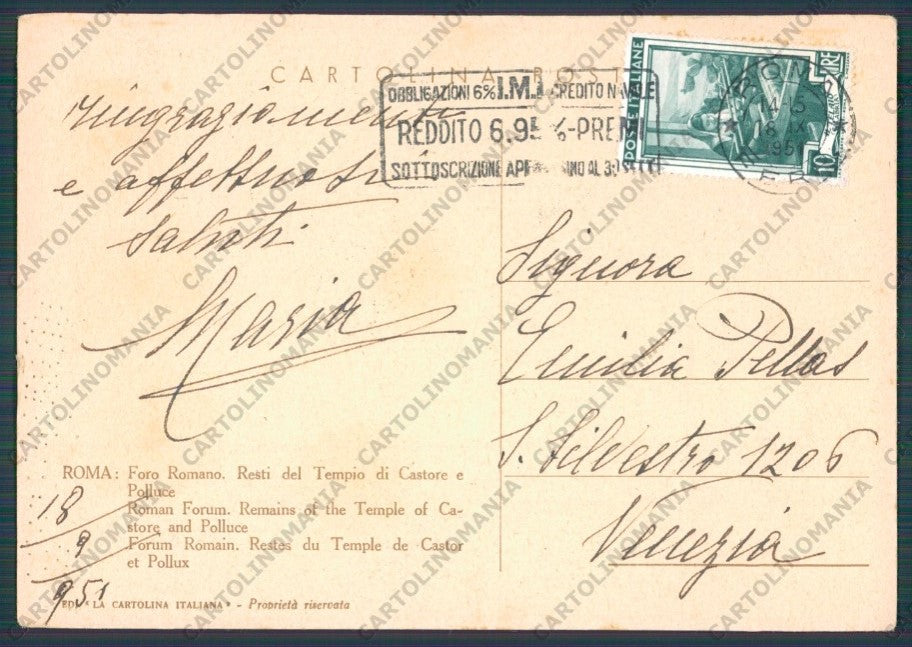 CARTOLINA POST
OBBLIGAZIONI 6% I.M.I. CREDITO NAVALE
REDDITO 6.95%-PREMI
SOTTOSCRIZIONE APERTA SINO AL 30 SETT
POSTE ITALIANE
LIRE
10
ROMA
14-15
18 IX
195
FERR
ringraziamenti
e affettuosi
saluti
Maria
Signora
Emilia Pellas
S. Silvestro 1206
Venezia
ROMA: Foro Romano. Resti del Tempio di Castore e
Polluce
Roman Forum. Remains of the Temple of Ca-
store and Polluce
Forum Romain. Restes du Temple de Castor
et Pollux
18
9
951
EDI. "LA CARTOLINA ITALIANA" - Proprietà riservata
CARTOLINOMANIA